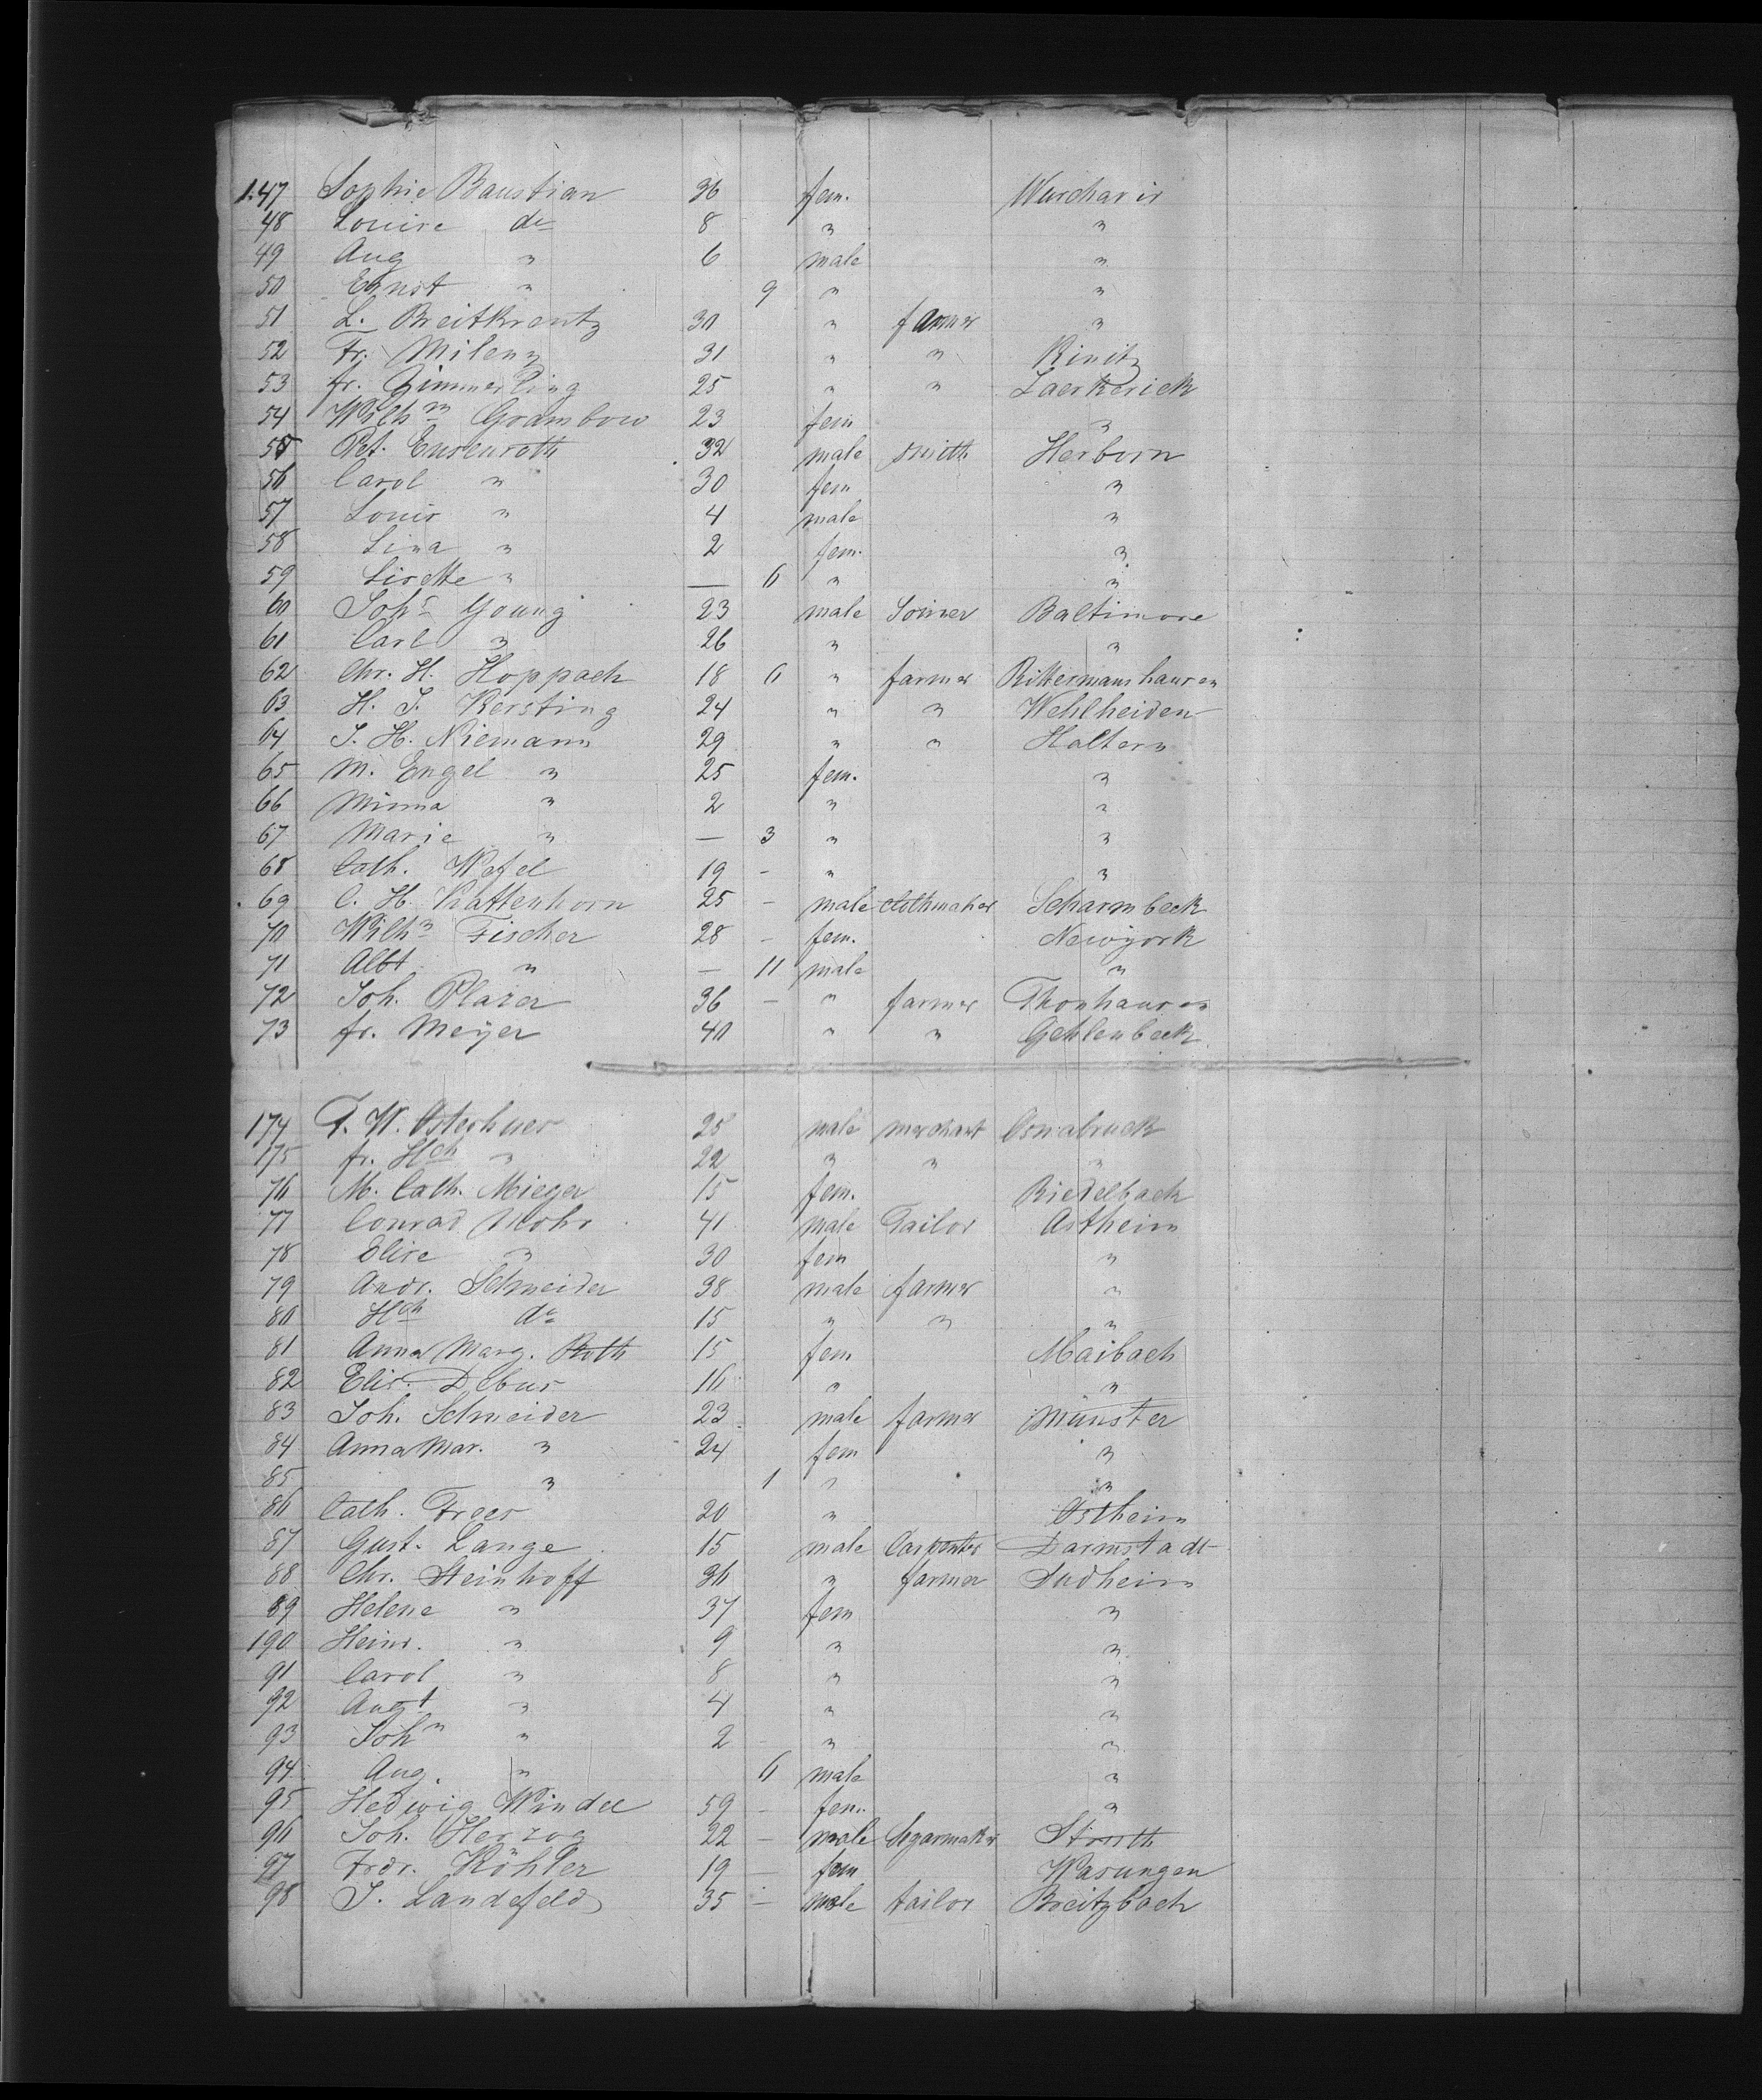 1.47 Sophie Baustian 36 fem. Warcharis
48 Louise do 8 " "
49 Aug " 6 male "
50 Ernst " 9 " "
51 L. Breitkrentz 30 " farmer "
52 Fr. Milenz 31 " " Kinitz
53 fr. Zimmerling 25 " " Laerkerick
54 Wilhm Grambow 23 fem "
55 Pet. Ensenroth 32 male smith Herborn
56 Carol " 30 fem "
57 Louis " 4 male "
58 Lina " 2 fem. "
59 Lisette " — 6 " "
60 Johs Young 23 male Joiner Baltimore
61 Carl " 26 " "
62 Chr. H. Hoppach 18 6 " farmer Rittermanshausen
63 H. J. Kersting 24 " " Wehlheiden
64 J. H. Niemann 29 " " Haltern
65 M. Engel " 25 fem. "
66 Minna " 2 " "
67 Marie " — 3 " "
68 Cath. Wefel 19 - " "
69 C. H. Kattenhorn 25 - male clothmaker Scharmbeck
70 Wilhm Fischer 28 - fem. Newyork
71 Albt " — 11 male "
72 Joh. Plaier 36 — " farmer Thonhausen
73 fr. Meÿer 40 " " Gehlenbeck
174 F. W. Osterhues 25 male merchant Osnabruck
175 fr. Hch " 22 " " "
76 M. Cath. Mieger 15 fem. Riedelbach
77 Conrad Mohr 41 male Tailor Astheim
78 Elise " 30 fem "
79 Andr. Schneider 38 male farmer "
80 Hch do 15 " " "
81 Anna Marg. Roth 15 fem Maibach
82 Elis. Debus 16 " "
83 Joh. Schneider 23 male farmer Münster
84 Anna Mar. " 24 fem "
85 " 1 " "
86 Cath. Frees 20 " Ostheim
87 Gust. Lange 15 male Carpenter Darmstadt
88 Chr. Steinhoff 36 " farmer Sudheim
89 Helene " 37 fem "
190 Heinr. " 9 " "
91 Carol " 8 " "
92 Augt " 4 " "
93 John " 2 " "
94 Aug. " 6 male "
95 Hedwig Windel 59 — fem. "
96 Joh. Herzog 22 — male Segarmaker Struth
97 Frdr. Köhler 19 — fem Wasungen
98 J. Landefeld 35 — male tailor Breitzbach